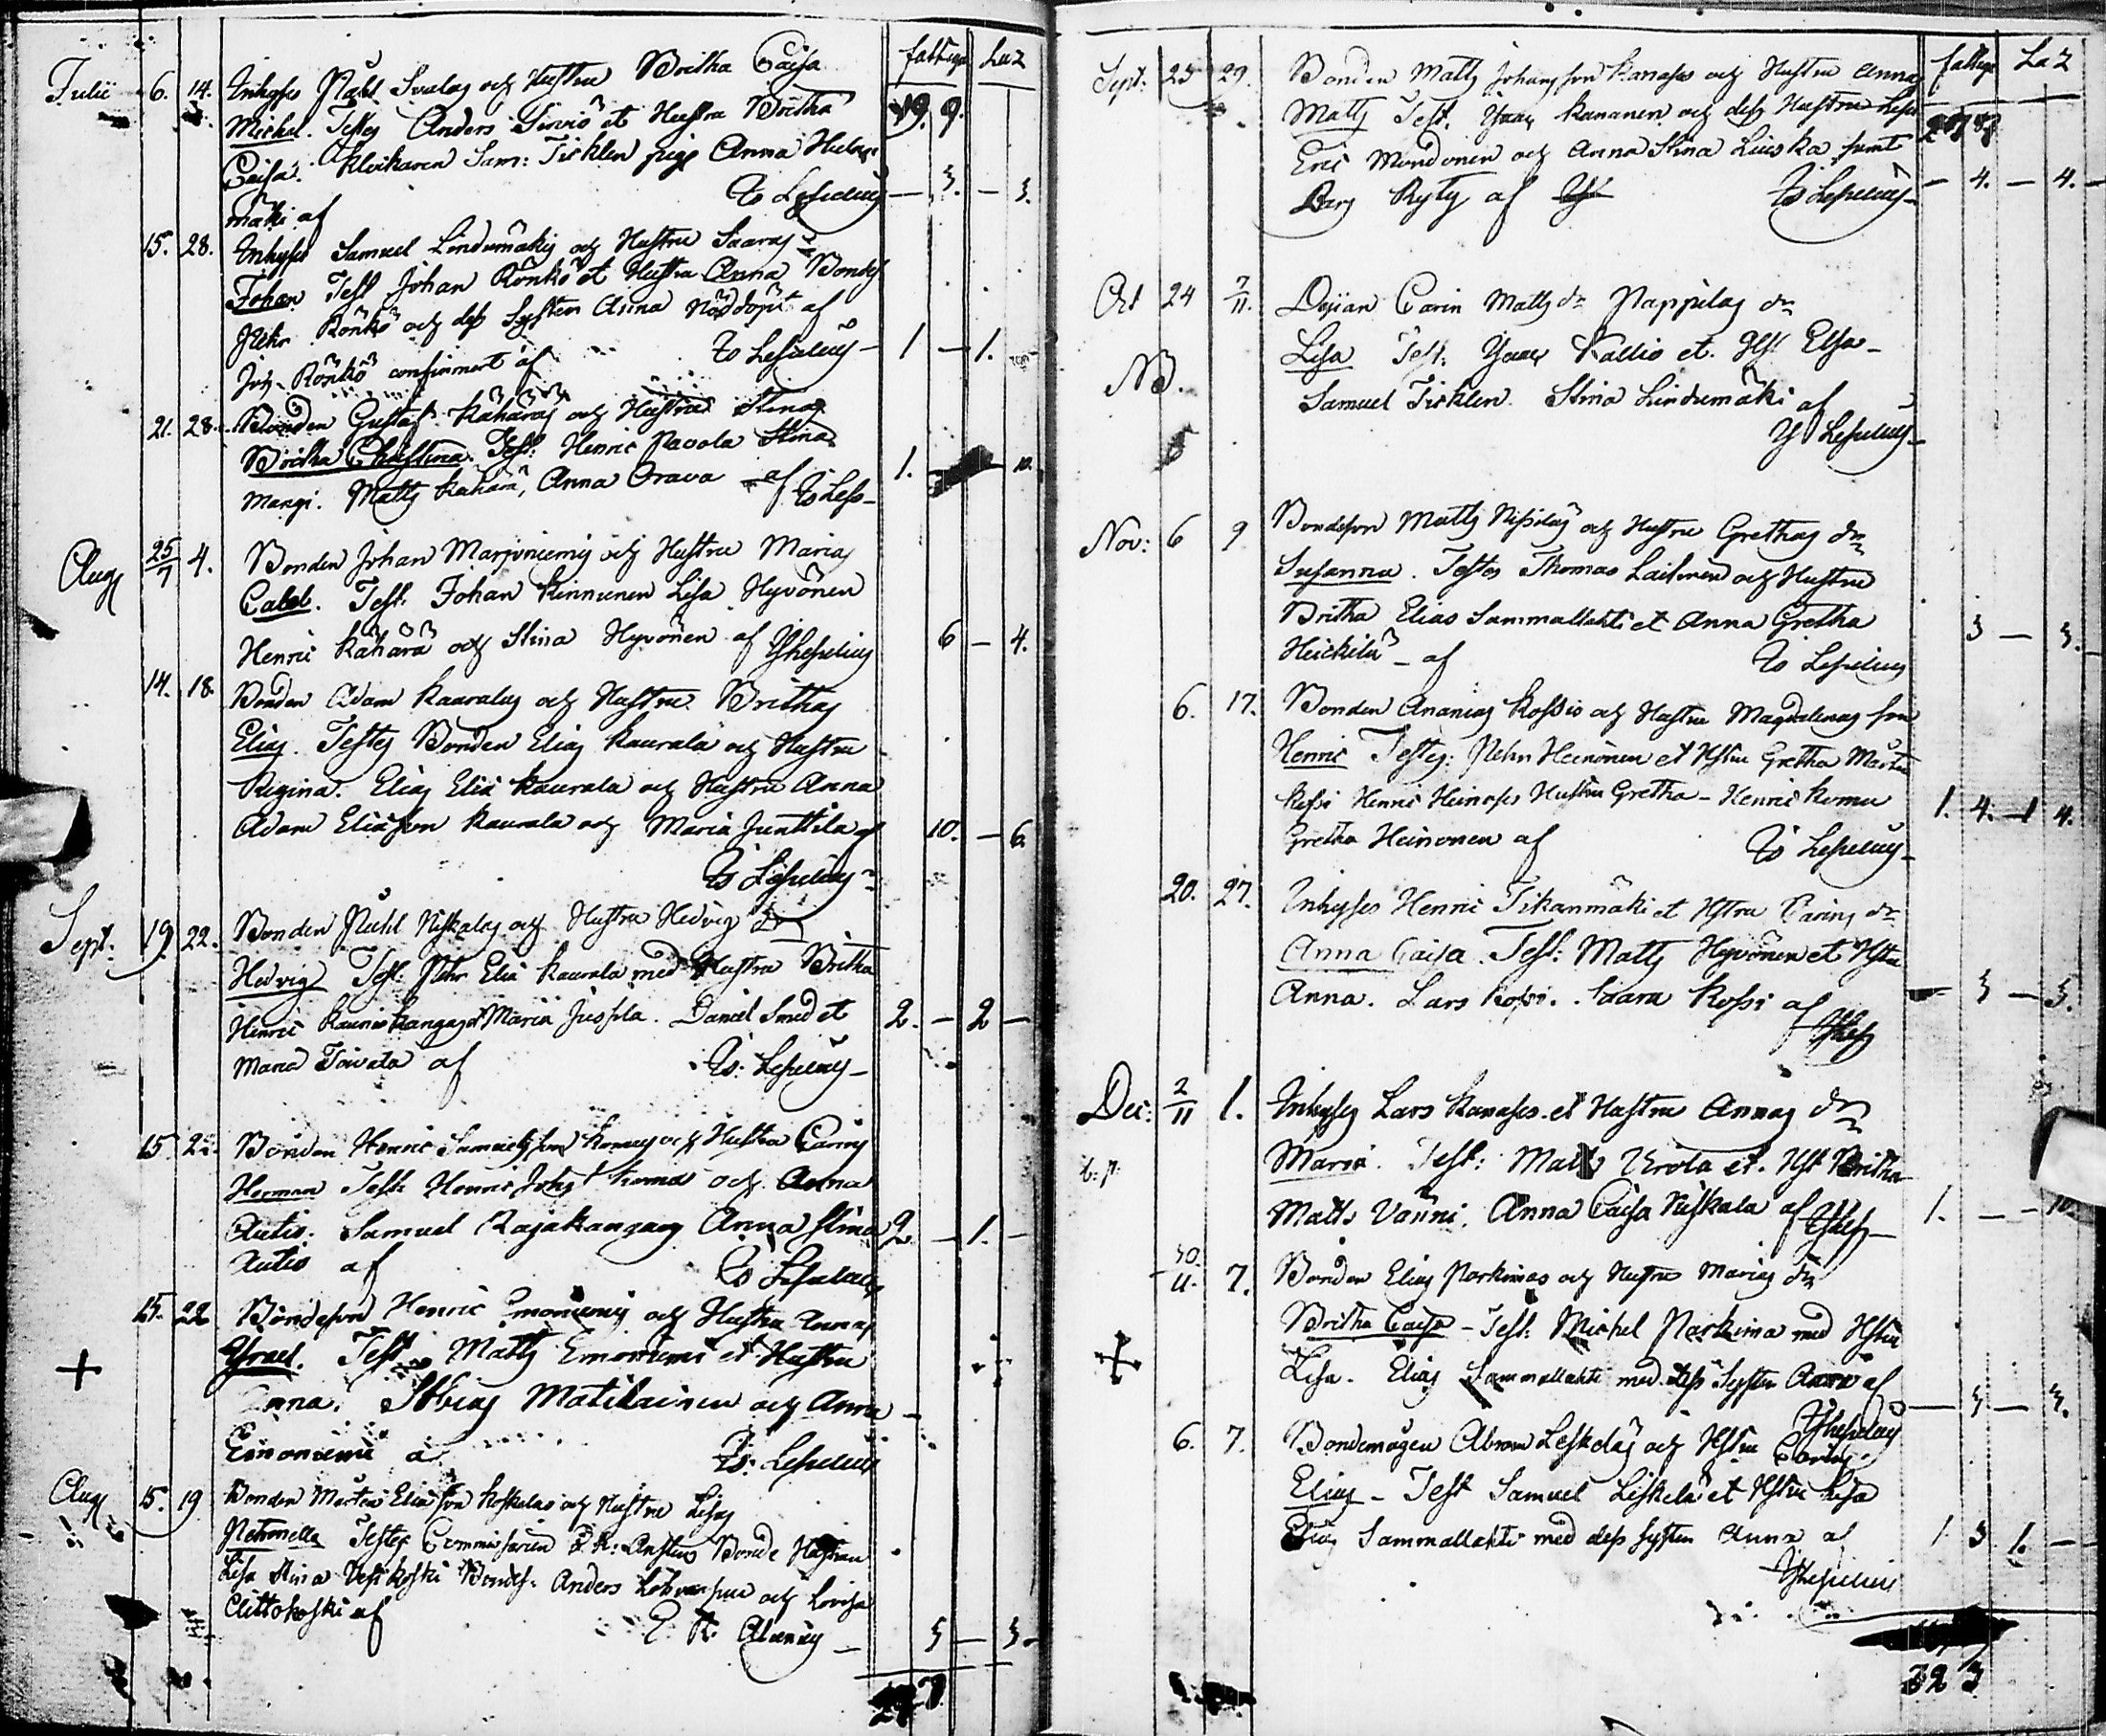 fattiga Laz
Julii 6. 14. Inhyses Påhl Svalas och Hustru Britha Caisa
Michel. Testes Anders Sirviö et Hustru Britha 19. 9.
Caisa. Klockaren Sam: Ticklen pige Anna
mäki af Is Lepelius — 3. — 3.
15. 28. Inhyses Samuel Lindumäkis och Hustru Saaras
Johan Test Johan Rönkö et Hustru Anna Bondes
Pehr Rönkö och dess Syster Anna Nöddöpt af
Joh. Rönkö confirmert af Is Lepelius — 1 — 1.
21. 28. Bonden Gustaf Kähäräs och Hustrus Stinas
Britha Christina. Test: Henric Pavola Stina
Mangi. Matts Kähärä, Anna Orava af Is Lep— 1. — 10.
Aug 25/7 4. Bonden Johan Marjoniemis och Hustru Marias
Caleb. Test: Johan Kinnunen Lisa Hyvönen
Henric Kähärä och Stina Hyvönen af Is Lepelius 6 — 4.
14. 18. Bonden Adam Kauralas och Hustru Brithas
Elias. Testes Bonden Elias Kaurala och Hustru
Regina. Elias Eliæ Kaurala och Hustru Anna
Adam Eliasson Kaurala och Maria Junttila af 10. — 6.
Is Lepelius
Sept: 19. 22. Bonden Påhl Niskalas och Hustru Hedvigs dr
Hedvig Test: Pehr Eliæ Kaurala med Hustru Britha
Henric Kauniskangas et Maria Juopila. Daniel Smed et 2. — 2 —
Maria Toivola af Is: Lepelius —
15. 22. Bonden Henric Samuelsson Komus och Hustru Carins
Herman Test: Henric Johs: Komu och Anna
Autio. Samuel Rajakangas Anna Stina 2. — 1. —
Autio af Is Lepelius
15. 22 Bondeson Henric Emoniemis och Hustru Annas
+ Israel. Test Matts Emoniemi et Hustru
Anna. Tobias Matilainen och Anna —
Emoniemi a Is: Lepelius
Aug 15. 19 Bonden Mårten Eliæson Koskelas och Hustru Lisas
Petronella Testes Commissarien E. K: Bonde Hustrun
Lisa Stina Vesikoski Bondes: Anders och Lovisa
Alittokoski af
E. K. — 5 — 3.

fattige Laz
Sept: 23 29. Bonden Matts Johansson Kanases och Hustru Annas
Matts Test. Isaac Kananen och dess Hustru Lisa
Eric Mondonen och Anna Stina Liuska samt
Lars Ryty af Is Lepelius — 4. — 4. —
Oct 24 7/11. Pigan Carin Matts dr Pappilas dr
NB. Lisa Test: Isaac Kallio et Hst Elsa —
Samuel Ticklen Stina Lindumäki af
Is Lepelius —
Nov: 6 9 Bondeson Matts och Hustru Grethas dr
Susanna. Testes Thomas Laitinen och Hustru
Britha Elias Sammallahti et Anna Gretha 3 — 3.
Heickilä — af Is Lepelius
6. 17. Bonden Ananias Kossis och Hustru Magdalenas son
Henric Testes: Pehr Heinonen et Hstru Gretha Mårten
Kossi Henric Heinoses Hustru Gretha — Henric Komu 1. 4. — 1 4.
Gretha Heinonen af Is Lepelius —
20. 27. Inhyses Henric Tikanmäki et Hstru Carins dr
Anna Caisa. Test: Matts Hyvönen et Hstru
Anna. Lars Kossi. Saara Kossi af — 3 — 3.
Is Lep
Dec: 2/11 1. Inhyses Lars Kanases et Hustru Annas dr
Maria. Test: Matts Urola et. Hst Britha
Matts Vänni. Anna Caisa Niskala af Is Lep — 1. — 10.
30./11. 7. Bonden Elias Parkimas och Hustru Marias dr
Britha Caisa — Test: Michel Parkima med Hstru
Lisa. Elias Sammallahti med dess Syster Anna af
Is Lepelius — 3 — 3.
6. 7. Bondemågen Abram Leskeläs och Hstru Carins
Elias — Test Samuel Leskelä et Hstru Lisa
Elias Sammallahti med dess Syster Anna af 1 3 1. —
Is Lepelius
32 3